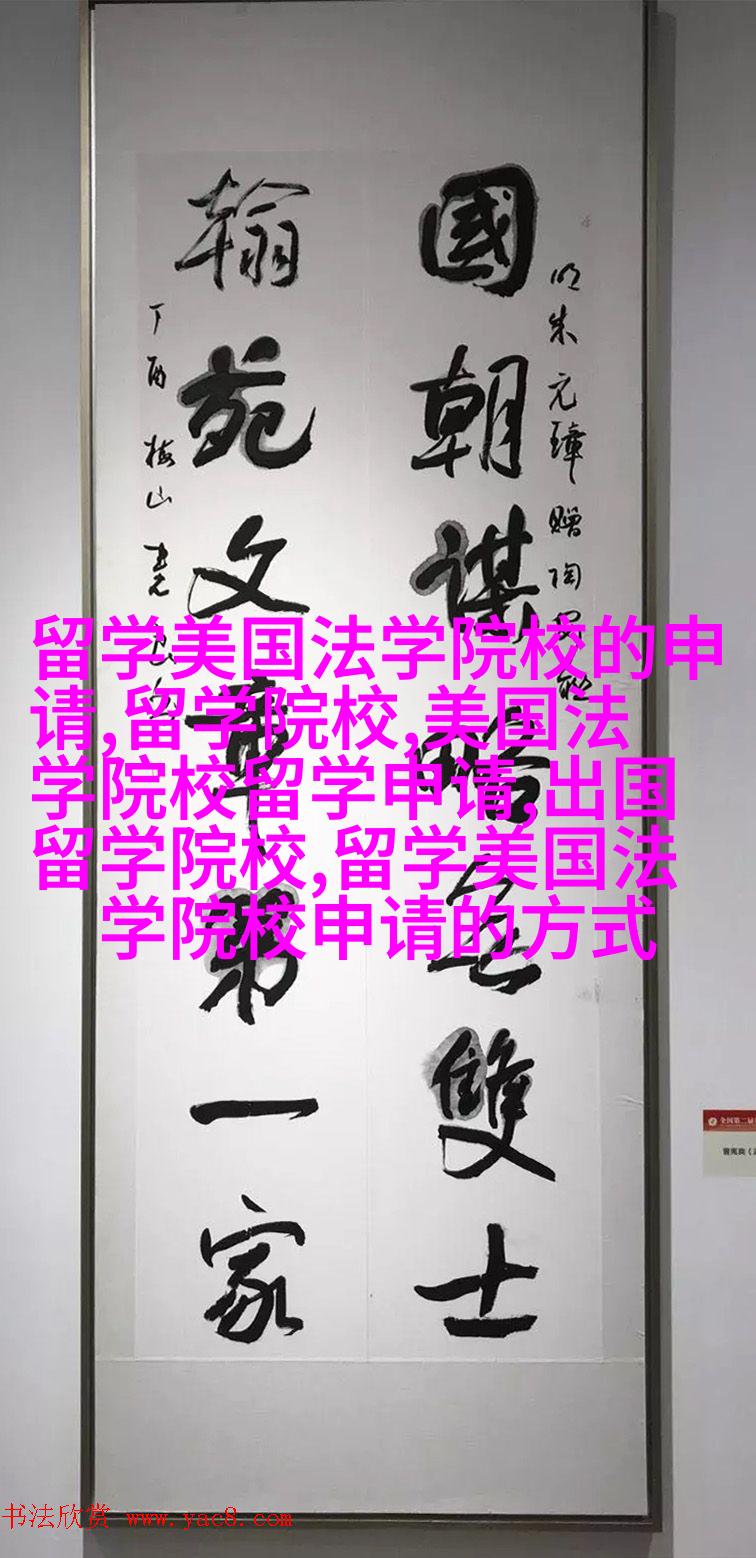 明朱元璋贈陶安聯
國朝謀略無雙士
翰苑文章第一家
丁酉梅山
留学美国法学院校的申
请,留学院校,美国法
学院校留学申请,出国
留学院校,留学美国法
学院校申请的方式
全国第二届
书法欣赏 www.yac8.com